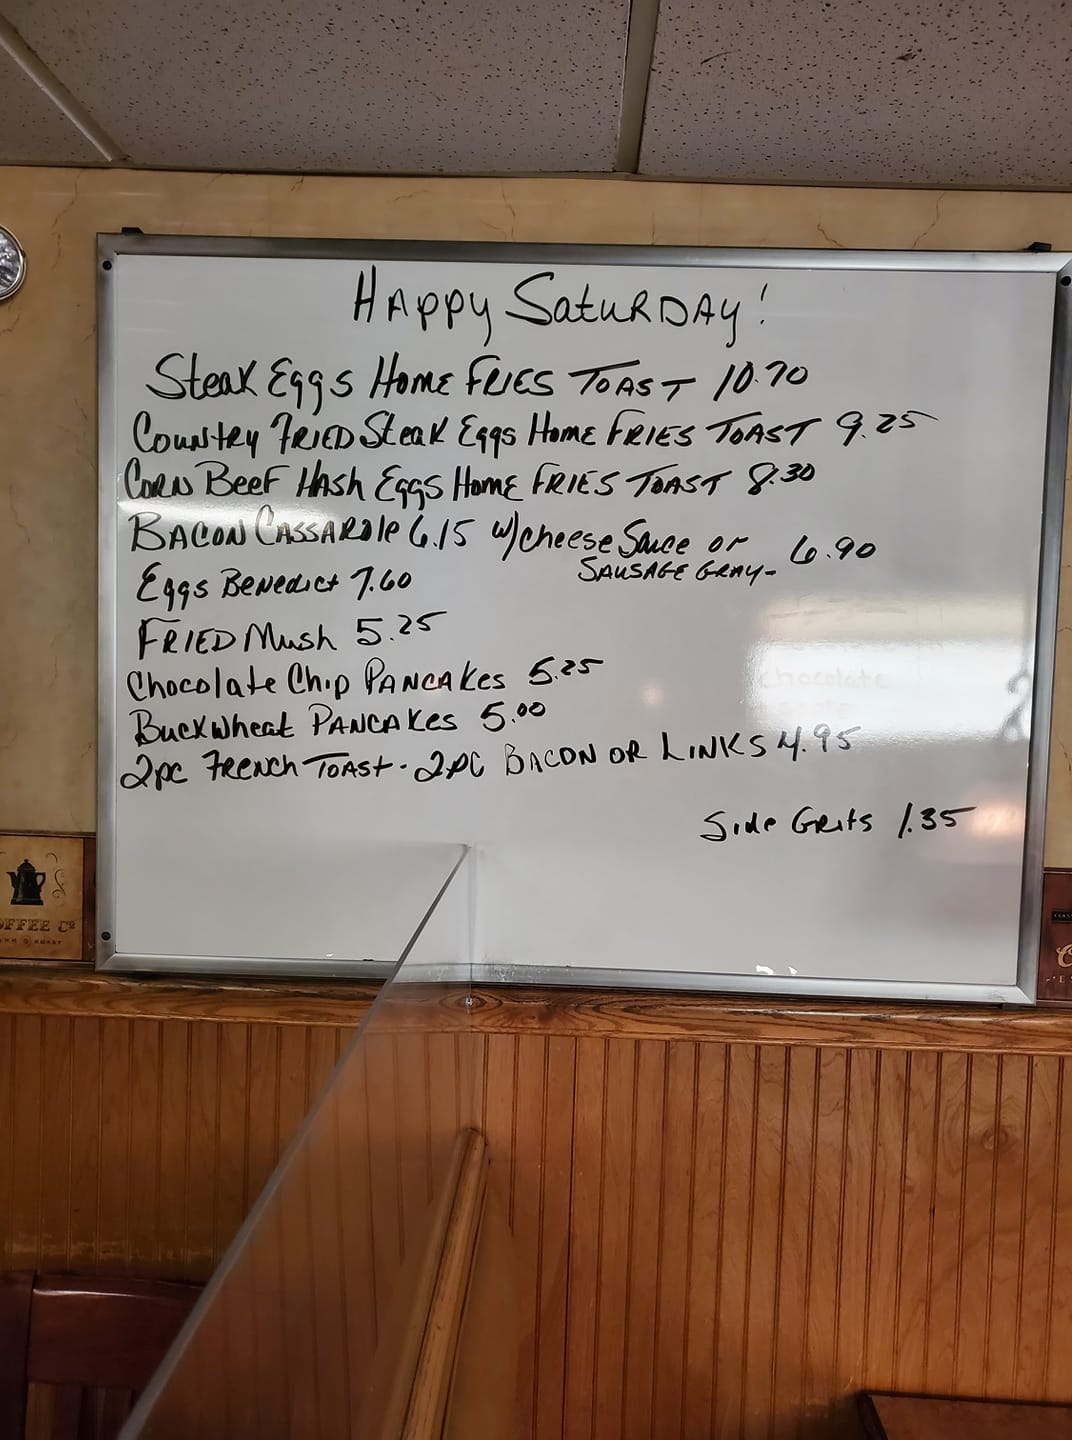 Happy Saturday!
Steak Eggs Home Fries Toast 10.70
Country Fried Steak Eggs Home Fries Toast 9.25
Corn Beef Hash Eggs Home Fries Toast 8.30
Bacon Cassarole 6.15 w/cheese Sauce or 6.90
Sausage Gray-
Eggs Benedict 7.60
Fried Mush 5.25
Chocolate Chip Pancakes 5.25
chocolate
Buckwheat Pancakes 5.00
2pc French Toast - 2pc Bacon or Links 4.95
Side Grits 1.35
OFFEE Co
ROAST